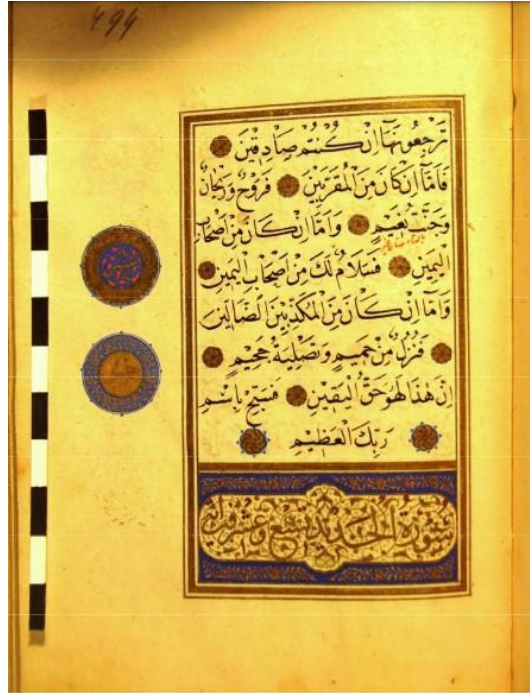 494
تَرْجِعُونَهَا اِنْ كُنْتُمْ صَادِقٖينَ
فَاَمَّا اِنْ كَانَ مِنَ الْمُقَرَّبٖينَ فَرَوْحٌ وَرَيْحَانٌ
وَجَنَّتُ نَعٖيمٍ وَاَمَّا اِنْ كَانَ مِنْ اَصْحَابِ
الْيَمٖينِ فَسَلَامٌ لَكَ مِنْ اَصْحَابِ الْيَمٖينِ
وَاَمَّا اِنْ كَانَ مِنَ الْمُكَذِّبٖينَ الضَّالّٖينَ
فَنُزُلٌ مِنْ حَمٖيمٍ وَتَصْلِيَةُ جَحٖيمٍ
اِنَّ هٰذَا لَهُوَ حَقُّ الْيَقٖينِ فَسَبِّحْ بِاسْمِ
رَبِّكَ الْعَظٖيمِ
سُورَةُ الْحَدٖيدِ تِسْعٌ وَعِشْرُونَ اٰيَةً